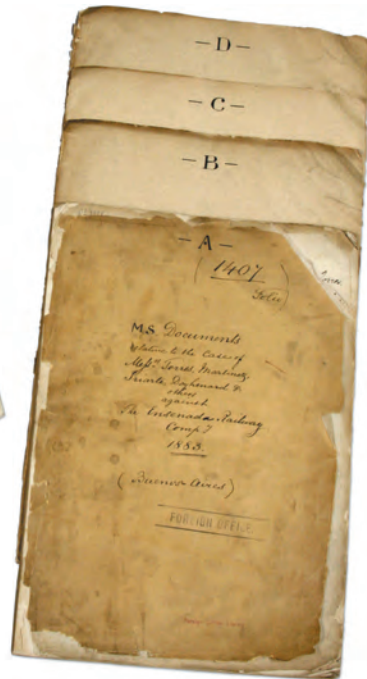 - D -
- C -
- B -
- A -
(1407)
M.S. Documents
relative to the Case of
Mess.rs Torres, Martinez,
&
others
against
The Ensenada Railway
Comp.y
1883.
(Buenos Aires)
FOREIGN OFFICE